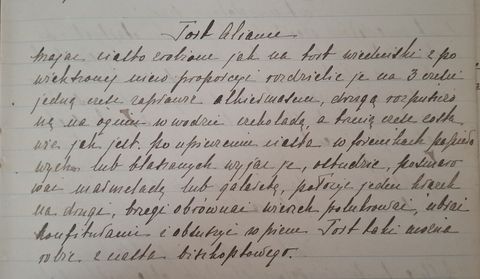 Tort Aliance
Mając ciasto zrobione jak na tort wiedeński z po
większonej nieco proporcyi rozdzielić je na 3 części
jedną część zaprawić alkiermasem, drugą rozpuszczo
ną na ogniu w wodzie czekoladą a trzecią część zosta
wić jak jest. po upieczeniu ciasta w foremkach papiero
wych lub blaszanych wyjąć je, ostudzić, posmaro
wać marmeladą lub galaretą, położyć jeden krążek
na drugi, brzegi obrównać wierzch polukrować, ubrać
konfiturami i obsuszyć w piecu. Tort taki można
robić z ciasta biszkoptowego.